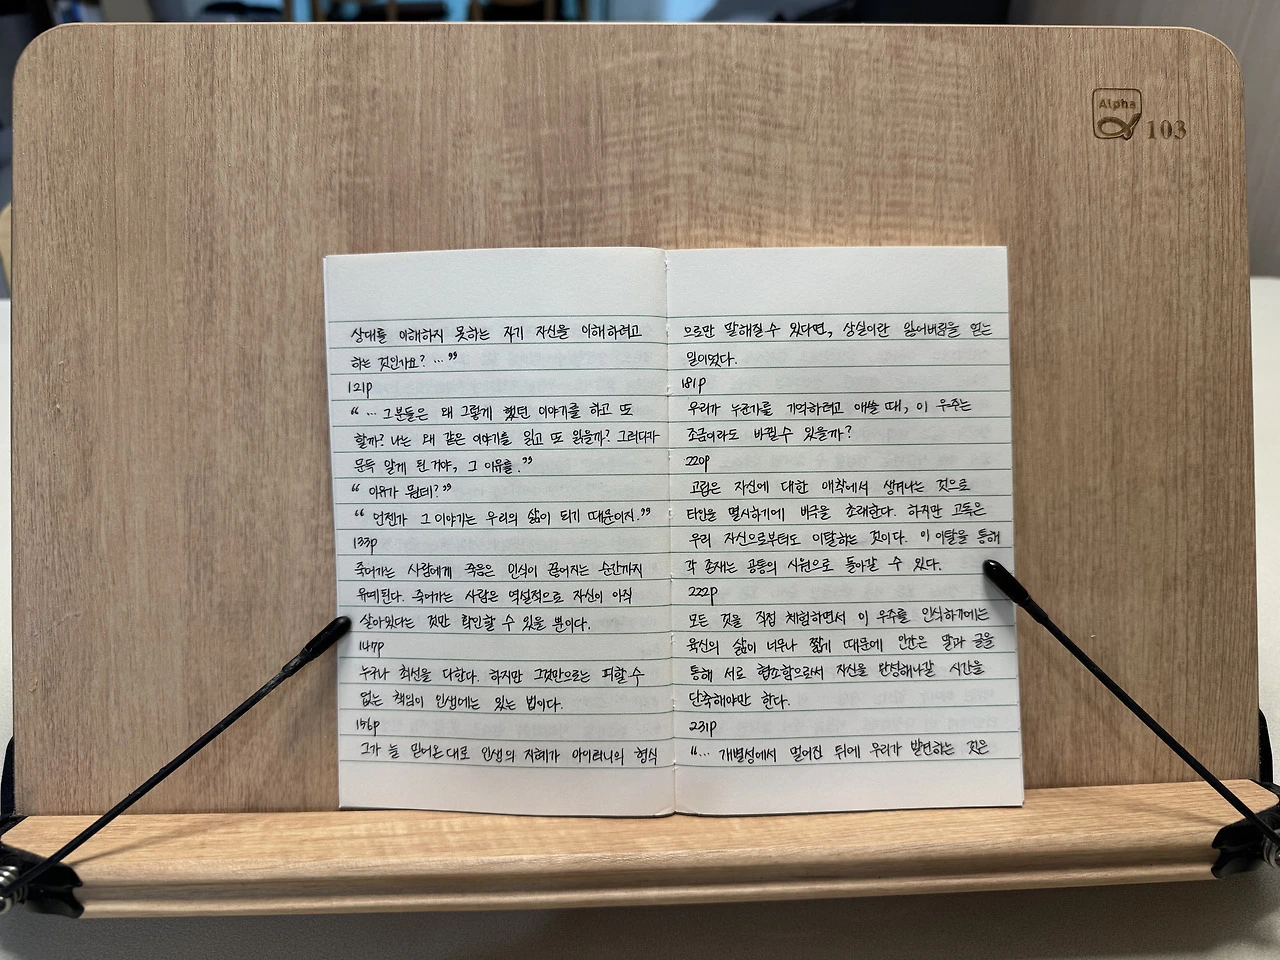 Alpha
103
상대를 이해하지 못하는 자기 자신을 이해하려고
하는 것인가요? …”
121p
“ … 그분들은 왜 그렇게 했던 이야기를 하고 또
할까? 나는 왜 같은 이야기를 읽고 또 읽을까? 그러다가
문득 알게 된 거야, 그 이유를.”
“ 이유가 뭔데?”
“ 언젠가 그 이야기는 우리의 삶이 되기 때문이지.”
133p
죽어가는 사람에게 죽음은 인식이 끊어지는 순간까지
유예된다. 죽어가는 사람은 역설적으로 자신이 아직
살아있다는 것만 확인할 수 있을 뿐이다.
147p
누구나 최선을 다한다. 하지만 그것만으로는 피할 수
없는 책임이 인생에는 있는 법이다.
156p
그가 늘 믿어온 대로 인생의 지혜가 아이러니의 형식
으로만 말해질 수 있다면, 상실이란 잃어버림을 얻는
일이었다.
181p
우리가 누군가를 기억하려고 애쓸 때, 이 우주는
조금이라도 바뀔 수 있을까?
220p
고립은 자신에 대한 애착에서 생겨나는 것으로
타인을 멸시하기에 비극을 초래한다. 하지만 고독은
우리 자신으로부터도 이탈하는 것이다. 이 이탈을 통해
각 존재는 공통의 시원으로 돌아갈 수 있다.
222p
모든 것을 직접 체험하면서 이 우주를 인식하기에는
육신의 삶이 너무나 짧기 때문에 인간은 말과 글을
통해 서로 협조함으로써 자신을 완성해나갈 시간을
단축해야만 한다.
231p
“… 개별성에서 멀어진 뒤에 우리가 발견하는 것은